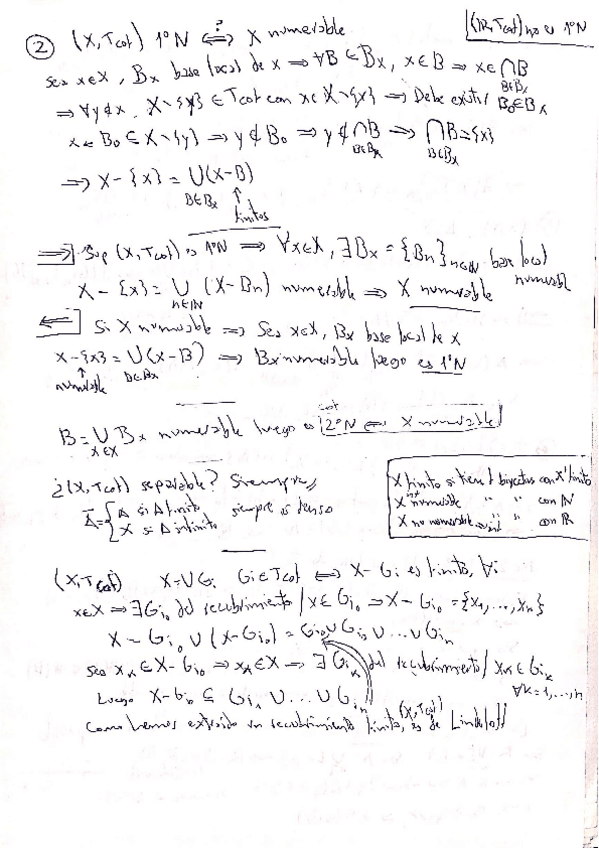 ② (X, Tcof) 1ºN ⟺? X numerable
(ℝ, Tcof) no es 1ºN
Sea x∈X, Bx base local de x ⇒ ∀B∈Bx, x∈B ⇒ x∈⋂B
B∈Bx
⇒ ∀y≠x, X\{y} ∈ Tcof con x∈X\{y} ⇒ Debe existir B₀∈Bx
x∈B₀⊆X\{y} ⇒ y∉B₀ ⇒ y∉⋂B ⇒ ⋂B={x}
B∈Bx B∈Bx
⇒ X-{x} = ⋃(X-B)
B∈Bx ↑
finitos
⇒] Sup (X, Tcof) es 1ºN ⇒ ∀x∈X, ∃Bx = {Bn}n∈ℕ base local
numerable
X-{x} = ⋃ (X-Bn) numerable ⇒ X numerable
n∈ℕ
⇐] Si X numerable ⇒ Sea x∈X, Bx base local de x
X-{x} = ⋃(X-B) ⇒ Bx numerable luego es 1ºN
↑ B∈Bx
numerable
B = ⋃ Bx numerable luego es 2ºN ⟺ X numerable
x∈X
cof
¿(X, Tcof) separable? Siempre
Ā = { A si A finito
X si A infinito
siempre es denso
X finito si tiene 1 bijección con X' finito
X inf numerable " " con ℕ
X no numerable " " con ℝ
(X, Tcof) X=⋃Gi Gi∈Tcof ⟺ X-Gi es finito, ∀i
x∈X ⇒ ∃Gi₀ del recubrimiento / x∈Gi₀ ⇒ X-Gi₀ = {x₁, ..., xn}
X = Gi₀ ∪ (X-Gi₀) = Gi₀∪Gi₁∪ ... ∪Gin
Sea xk∈X-Gi₀ ⇒ xk∈X ⇒ ∃Gik del recubrimiento / xk∈Gik
∀k=1,...,n
Luego X-Gi₀ ⊆ Gi₁ ∪ ... ∪ Gin
Como hemos extraído un recubrimiento finito, (X, Tcof) es de Lindelöf